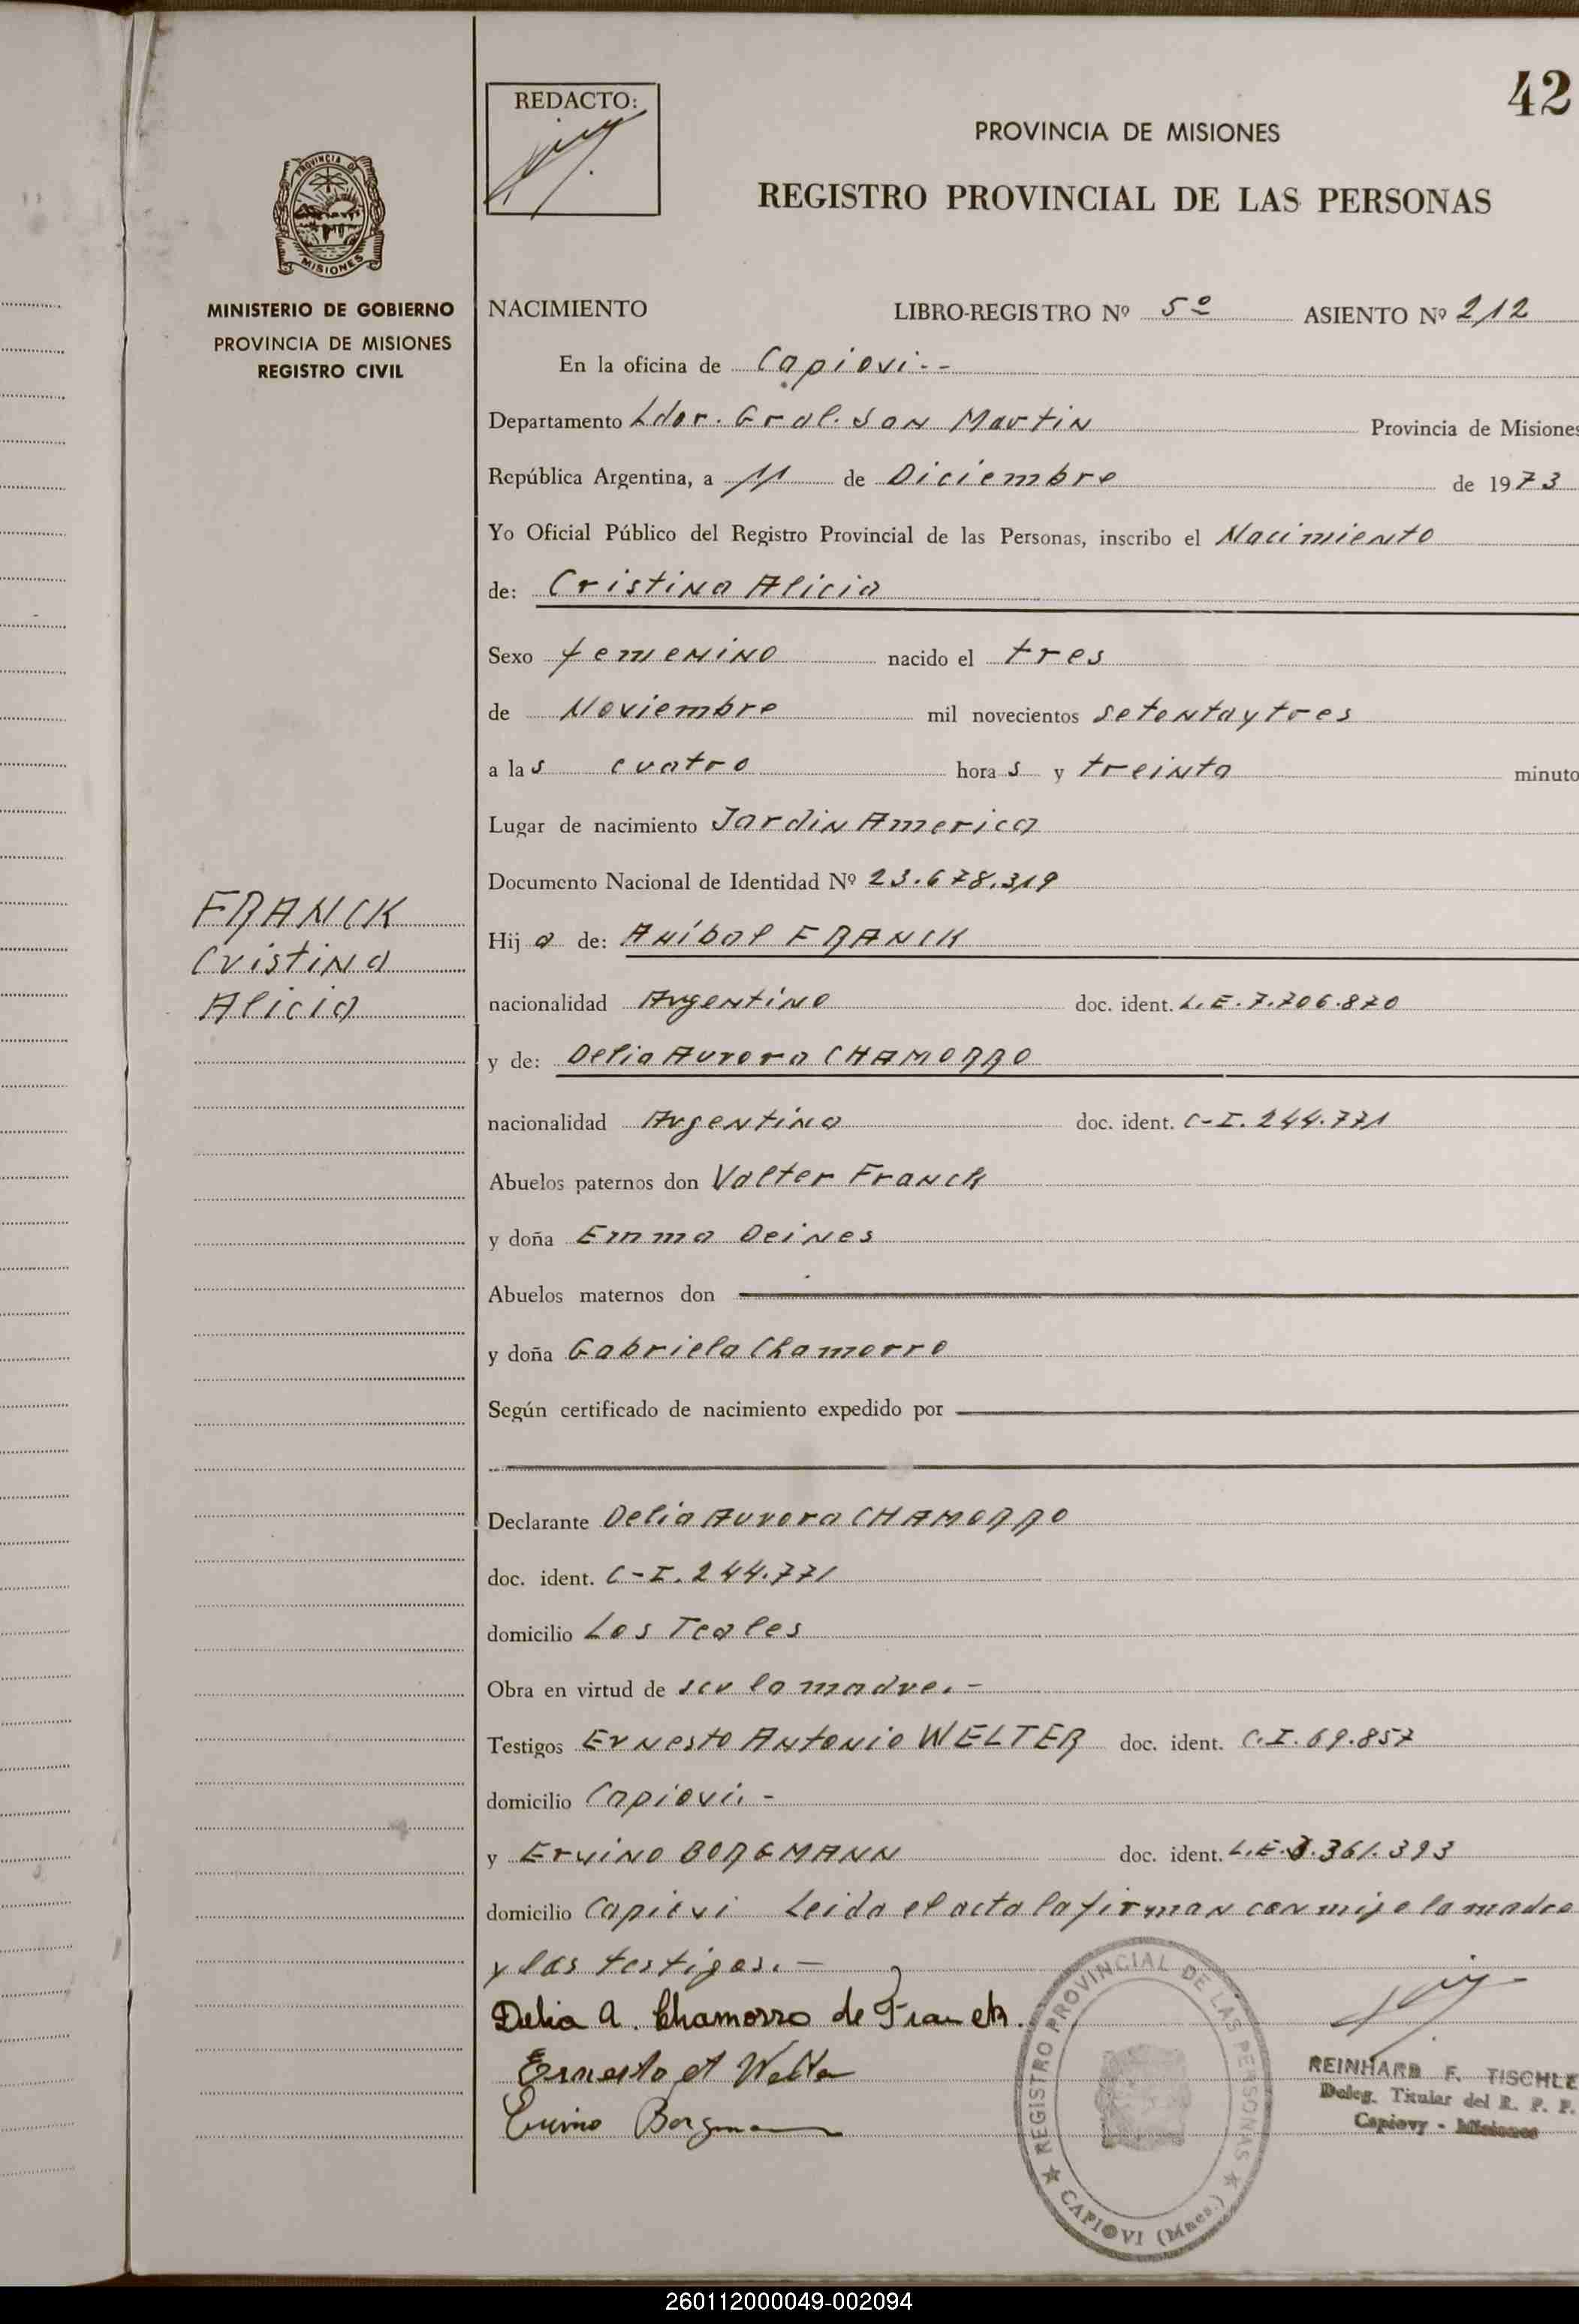 42
REDACTO:
PROVINCIA DE MISIONES
REGISTRO PROVINCIAL DE LAS PERSONAS
PROVINCIA DE
MISIONES
MINISTERIO DE GOBIERNO
PROVINCIA DE MISIONES
REGISTRO CIVIL
NACIMIENTO LIBRO-REGISTRO Nº 5º ASIENTO Nº 212
En la oficina de Capiovi.-
Departamento Ldor. Gral. San Martin Provincia de Misiones
República Argentina, a 11 de Diciembre de 1973
Yo Oficial Público del Registro Provincial de las Personas, inscribo el Nacimiento
de: Cristina Alicia
Sexo femenino nacido el tres
de Noviembre mil novecientos setentaytres
a las cuatro horas y treinta minuto
Lugar de nacimiento Jardin America
Documento Nacional de Identidad Nº 23.678.319
FRANCK
Cristina
Alicia
Hija de: Aníbal FRANCK
nacionalidad Argentino doc. ident. L.E.7.706.870
y de: Delia Aurora CHAMORRO
nacionalidad Argentina doc. ident. C-I.244.771
Abuelos paternos don Valter Franck
y doña Emma Deines
Abuelos maternos don
y doña Gabriela Chamorro
Según certificado de nacimiento expedido por
Declarante Delia Aurora CHAMORRO
doc. ident. C-I.244.771
domicilio Los Teales
Obra en virtud de ser la madre.-
Testigos Ernesto Antonio WELTER doc. ident. C.I.69.857
domicilio Capiovi.-
y Ervino BORGMANN doc. ident. L.E. .361.393
domicilio Capiovi Leida el acta la firman conmigo la madre
y los testigos.-
Delia A. Chamorro de Franck.
Ernesto A Welter
Ervino Borgmann
REGISTRO PROVINCIAL DE LAS PERSONAS
CAPIOVI (Mnes.)
REINHARD F. TISCHLE
Deleg. Titular del R. P. P.
Capiovy - Misiones
260112000049-002094